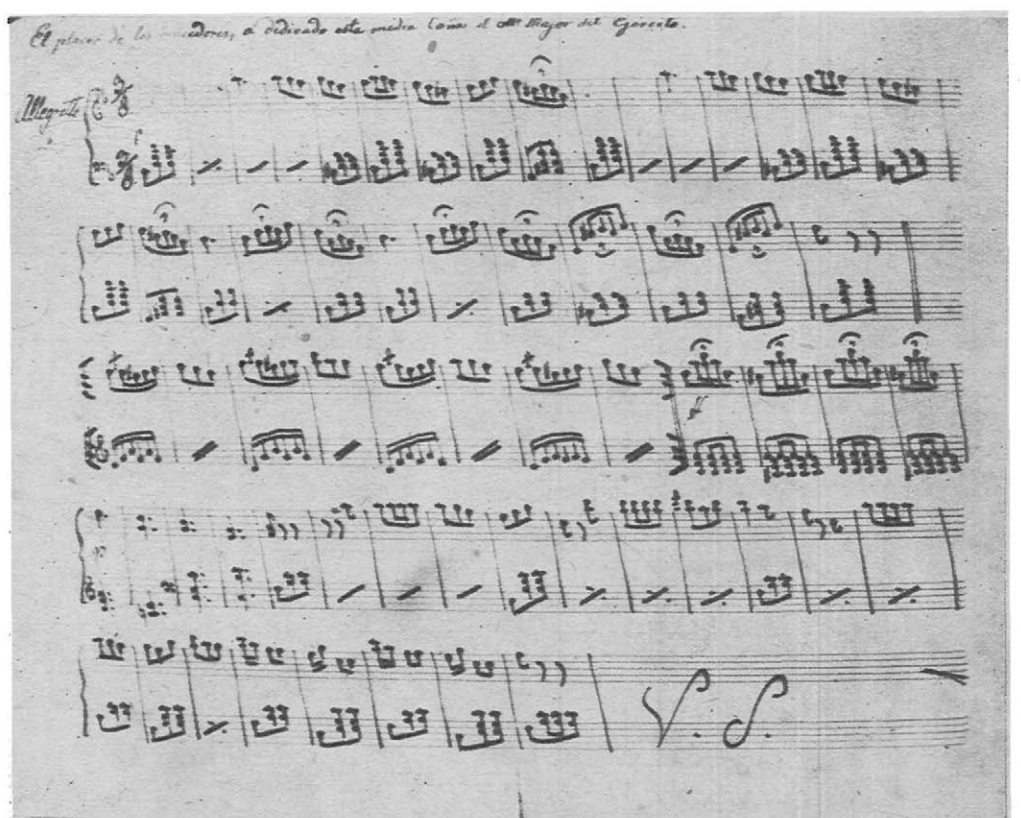 El placer de los , a dedicado esta media Caña el Mtro Mayor del Egercito.
Allegretto
3 8
3 8
V. S.